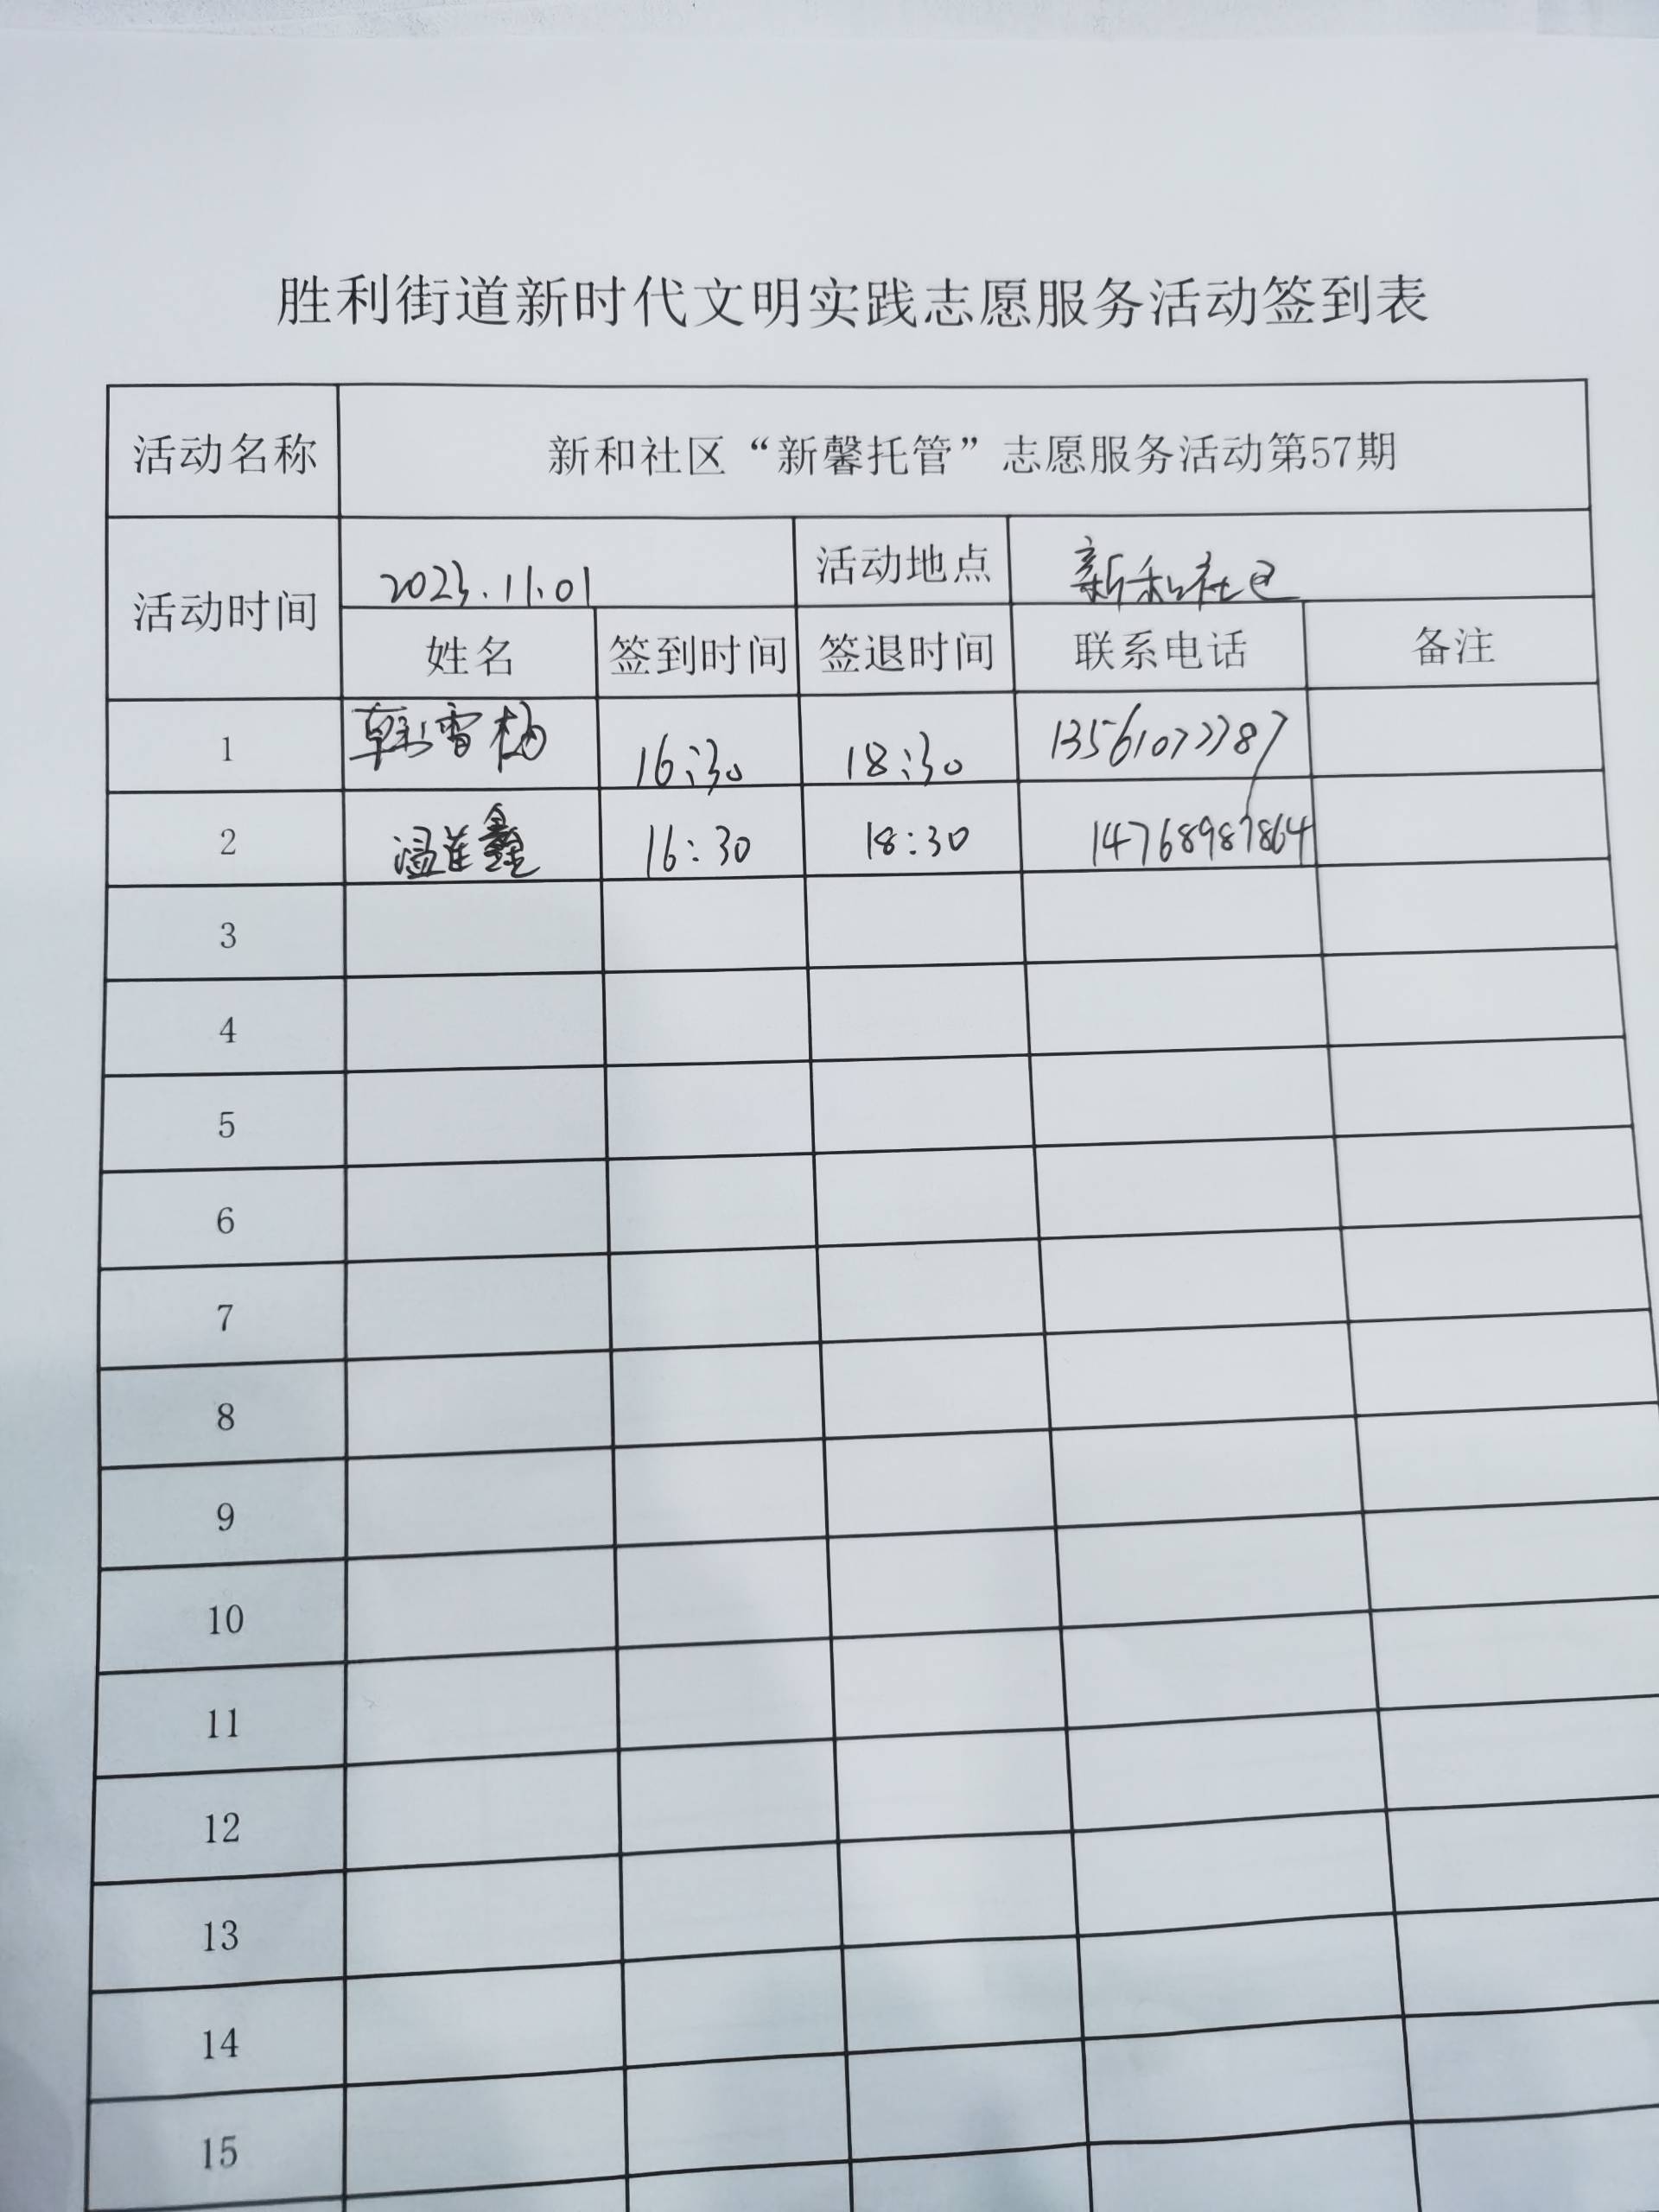 胜利街道新时代文明实践志愿服务活动签到表
活动名称 新和社区“新馨托管”志愿服务活动第57期
活动时间 2023.11.01 活动地点 新和社区
姓名 签到时间 签退时间 联系电话 备注
1 韩雪梅 16:30 18:30
2 温莲鑫 16:30 18:30 14768987864
3
4
5
6
7
8
9
10
11
12
13
14
15